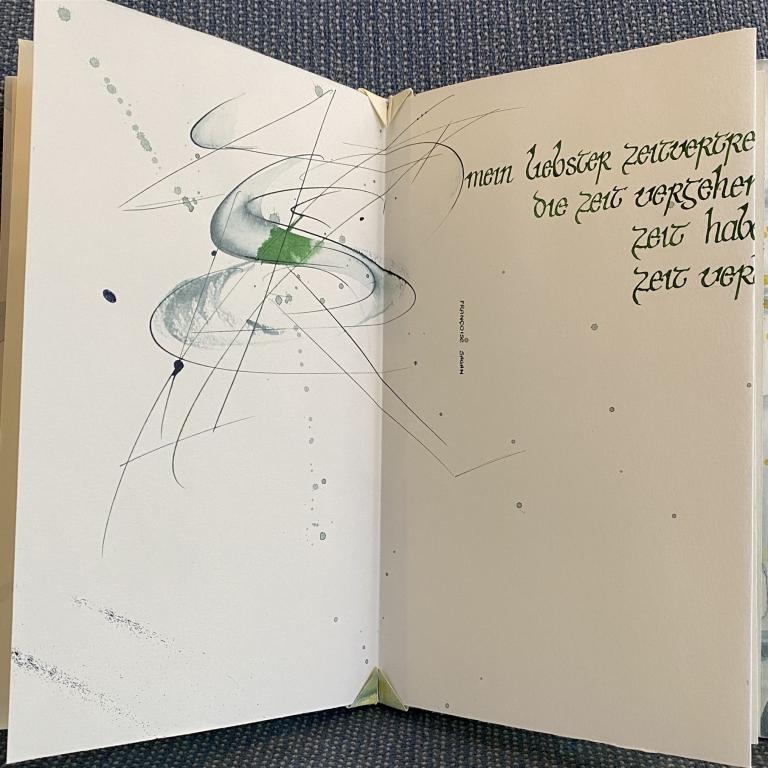 mein liebster zeitvertre
die zeit vergehen
zeit habe
zeit ver
FRANÇOISE SAGAN